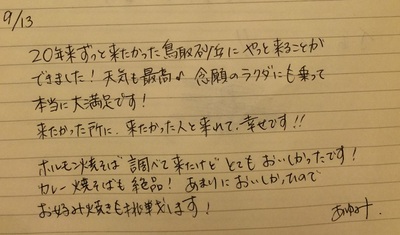 9/13
20年来ずっと来たかった鳥取砂丘にやっと来ることが
できました！天気も最高♪ 念願のラクダにも乗って
本当に大満足です！
来たかった所に、来たかった人と来れて、幸せです!!
ホルモン焼そば 調べて来たけど とてもおいしかったです！
カレー焼そばも絶品！ あまりにおいしかったので
お好み焼きも挑戦します！
あゆみ